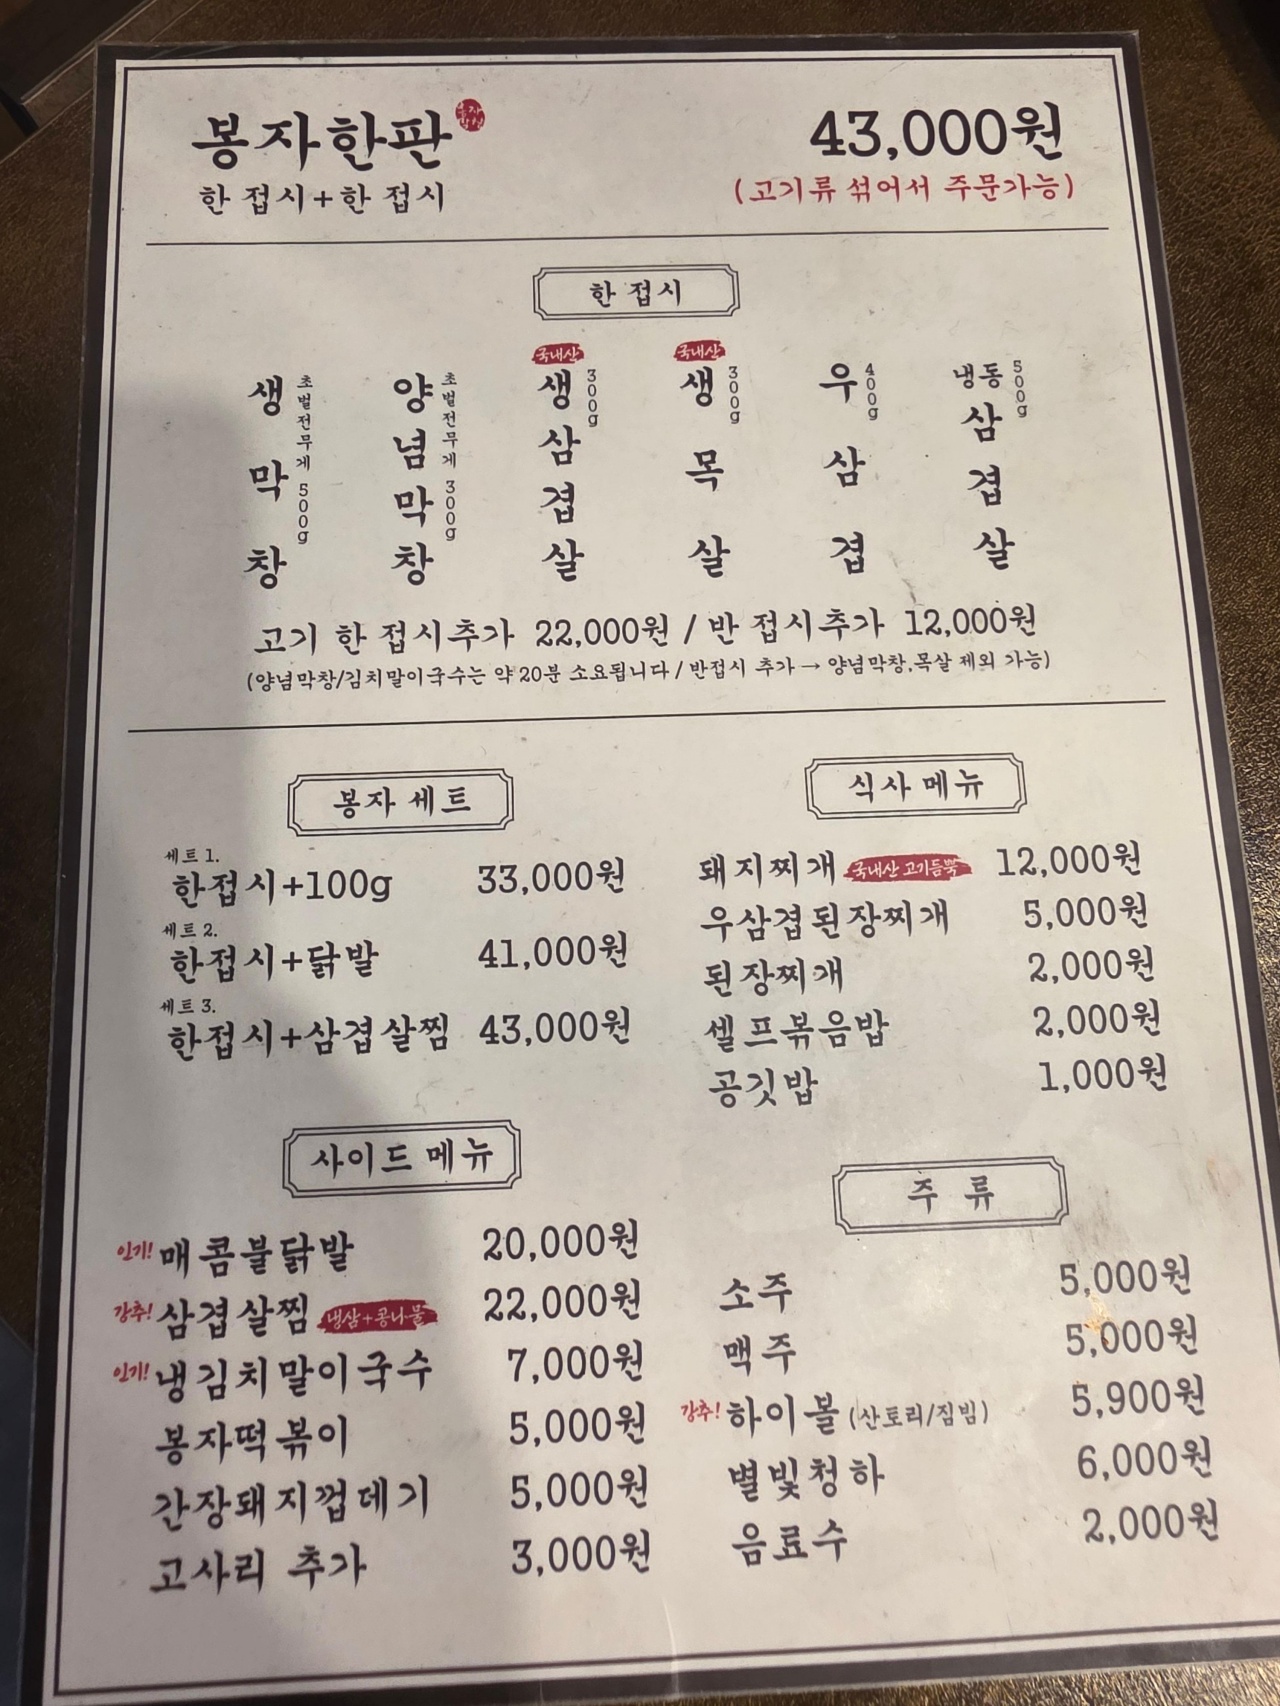 봉자한판 43,000원
한 접시+한 접시 (고기류 섞어서 주문가능)
한 접시
생막창 초벌전무게 500g
양념막창 초벌전무게 300g
국내산 생삼겹살 300g
국내산 생목살 300g
우삼겹 400g
냉동삼겹살 500g
고기 한 접시추가 22,000원 / 반 접시추가 12,000원
(양념막창/김치말이국수는 약 20분 소요됩니다 / 반접시 추가 → 양념막창,목살 제외 가능)
봉자 세트
세트 1.
한접시+100g 33,000원
세트 2.
한접시+닭발 41,000원
세트 3.
한접시+삼겹살찜 43,000원
식사 메뉴
돼지찌개 국내산 고기듬뿍 12,000원
우삼겹된장찌개 5,000원
된장찌개 2,000원
셀프볶음밥 2,000원
공깃밥 1,000원
사이드 메뉴
인기! 매콤불닭발 20,000원
강추! 삼겹살찜 냉삼+콩나물 22,000원
인기! 냉김치말이국수 7,000원
봉자떡볶이 5,000원
간장돼지껍데기 5,000원
고사리 추가 3,000원
주 류
소주 5,000원
맥주 5,000원
강추! 하이볼 (산토리/짐빔) 5,900원
별빛청하 6,000원
음료수 2,000원